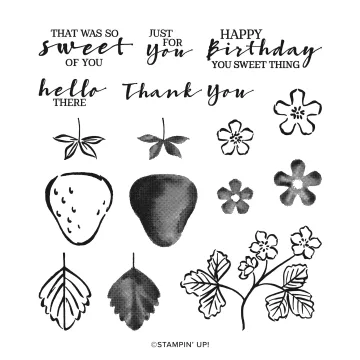 THAT WAS SO
sweet
OF YOU
JUST
FOR
you
HAPPY
Birthday
YOU SWEET THING
hello
THERE
Thank You
©STAMPIN' UP!